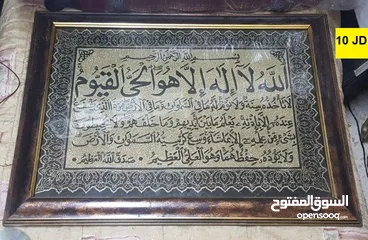 10 JD
بسم الله الرحمن الرحيم
الله لا إله إلا هو الحي القيوم
لا تأخذه سنة ولا نوم له ما في السموات وما في الأرض من ذا الذي يشفع
عنده إلا بإذنه يعلم ما بين أيديهم وما خلفهم ولا يحيطون
بشيء من علمه إلا بما شاء وسع كرسيه السموات والأرض
ولا يؤده حفظهما وهو العلي العظيم صدق الله العظيم
السوق المفتوح
opensooq.com